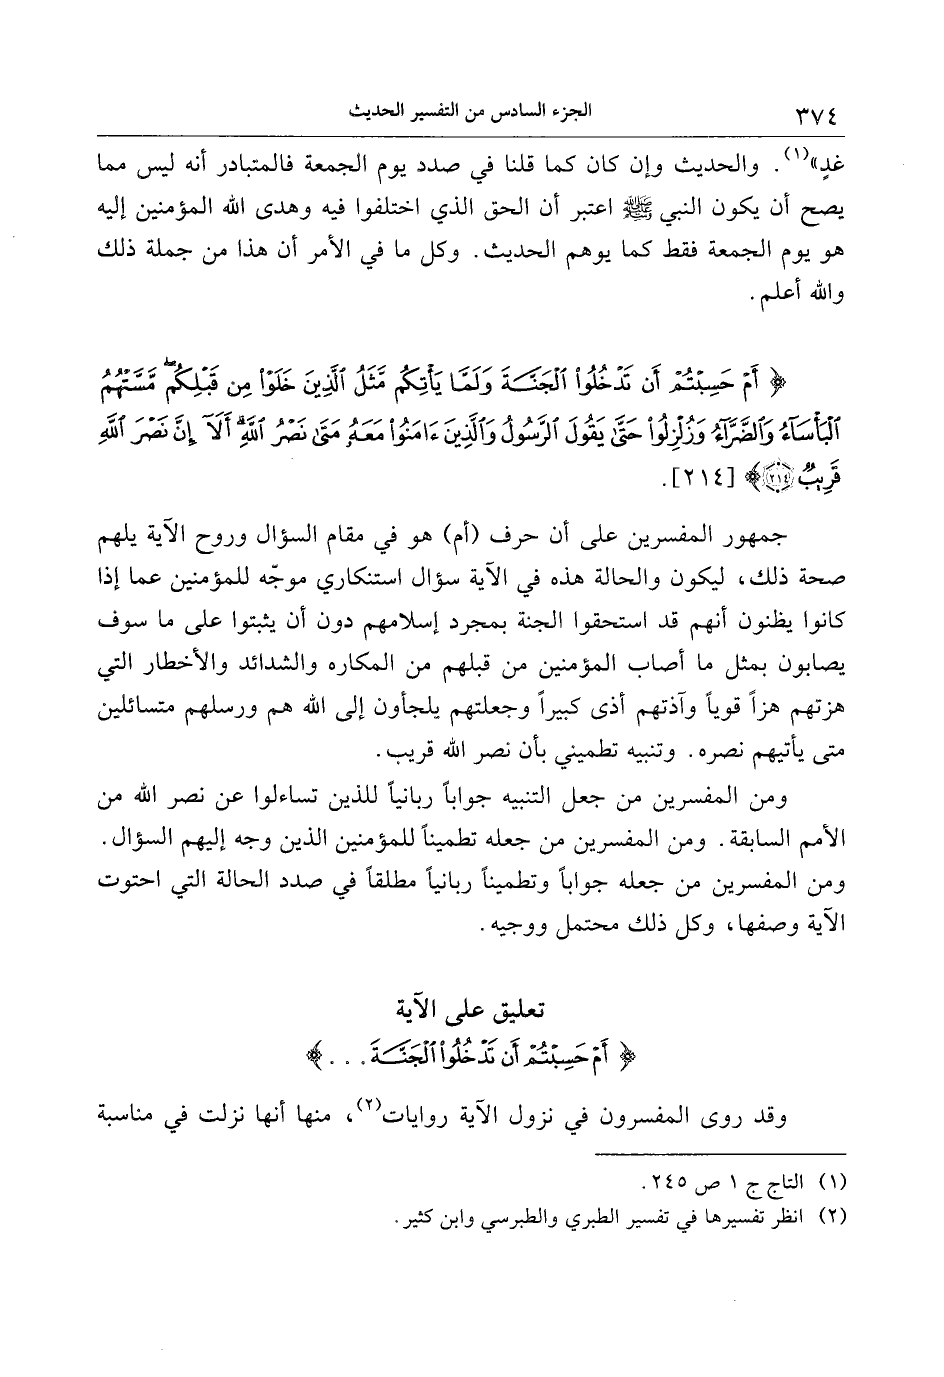 ٣٧٤ الجزء السادس من التفسير الحديث
غدٍ»(١). والحديث وإن كان كما قلنا في صدد يوم الجمعة فالمتبادر أنه ليس مما
يصح أن يكون النبي ﷺ اعتبر أن الحق الذي اختلفوا فيه وهدى الله المؤمنين إليه
هو يوم الجمعة فقط كما يوهم الحديث. وكل ما في الأمر أن هذا من جملة ذلك
والله أعلم.
﴿ أَمۡ حَسِبۡتُمۡ أَن تَدۡخُلُواْ ٱلۡجَنَّةَ وَلَمَّا يَأۡتِكُم مَّثَلُ ٱلَّذِينَ خَلَوۡاْ مِن قَبۡلِكُمۖ مَّسَّتۡهُمُ
ٱلۡبَأۡسَآءُ وَٱلضَّرَّآءُ وَزُلۡزِلُواْ حَتَّىٰ يَقُولَ ٱلرَّسُولُ وَٱلَّذِينَ ءَامَنُواْ مَعَهُۥ مَتَىٰ نَصۡرُ ٱللَّهِۗ أَلَآ إِنَّ نَصۡرَ ٱللَّهِ
قَرِيبٞ ٢١٤ ﴾ [٢١٤].
جمهور المفسرين على أن حرف (أم) هو في مقام السؤال وروح الآية يلهم
صحة ذلك، ليكون والحالة هذه في الآية سؤال استنكاري موجّه للمؤمنين عما إذا
كانوا يظنون أنهم قد استحقوا الجنة بمجرد إسلامهم دون أن يثبتوا على ما سوف
يصابون بمثل ما أصاب المؤمنين من قبلهم من المكاره والشدائد والأخطار التي
هزتهم هزاً قوياً وآذتهم أذى كبيراً وجعلتهم يلجأون إلى الله هم ورسلهم متسائلين
متى يأتيهم نصره. وتنبيه تطميني بأن نصر الله قريب.
ومن المفسرين من جعل التنبيه جواباً ربانياً للذين تساءلوا عن نصر الله من
الأمم السابقة. ومن المفسرين من جعله تطميناً للمؤمنين الذين وجه إليهم السؤال.
ومن المفسرين من جعله جواباً وتطميناً ربانياً مطلقاً في صدد الحالة التي احتوت
الآية وصفها، وكل ذلك محتمل ووجيه.
تعليق على الآية
﴿ أَمۡ حَسِبۡتُمۡ أَن تَدۡخُلُواْ ٱلۡجَنَّةَ . . . ﴾
وقد روى المفسرون في نزول الآية روايات(٢)، منها أنها نزلت في مناسبة
(١) التاج ج ١ ص ٢٤٥.
(٢) انظر تفسيرها في تفسير الطبري والطبرسي وابن كثير.